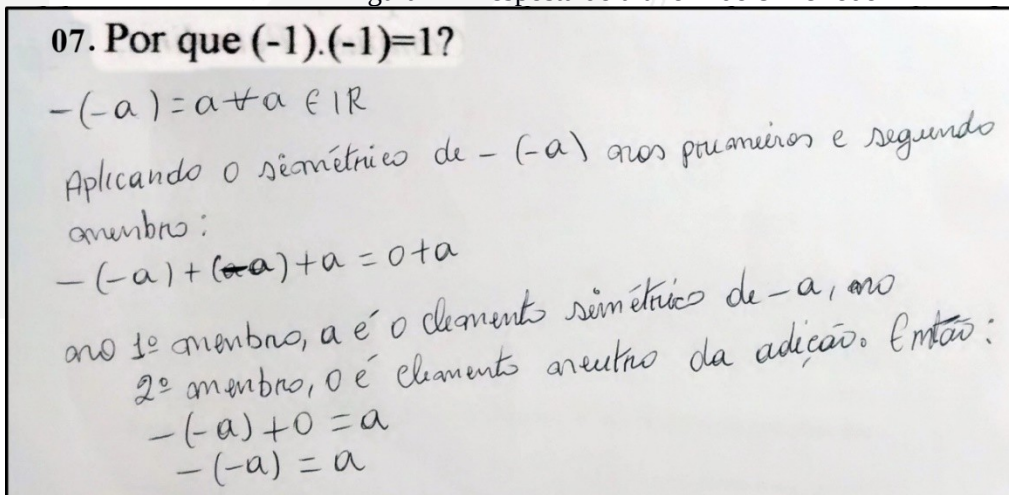 07. Por que (-1).(-1)=1?
-(-a) = a ∀ a ∈ IR
Aplicando o simétrico de -(-a) nos primeiros e segundo
membro:
-(-a) + (-a) + a = 0 + a
no 1º membro, a é o elemento simétrico de -a, no
2º membro, 0 é elemento neutro da adição. Então:
-(-a) + 0 = a
-(-a) = a